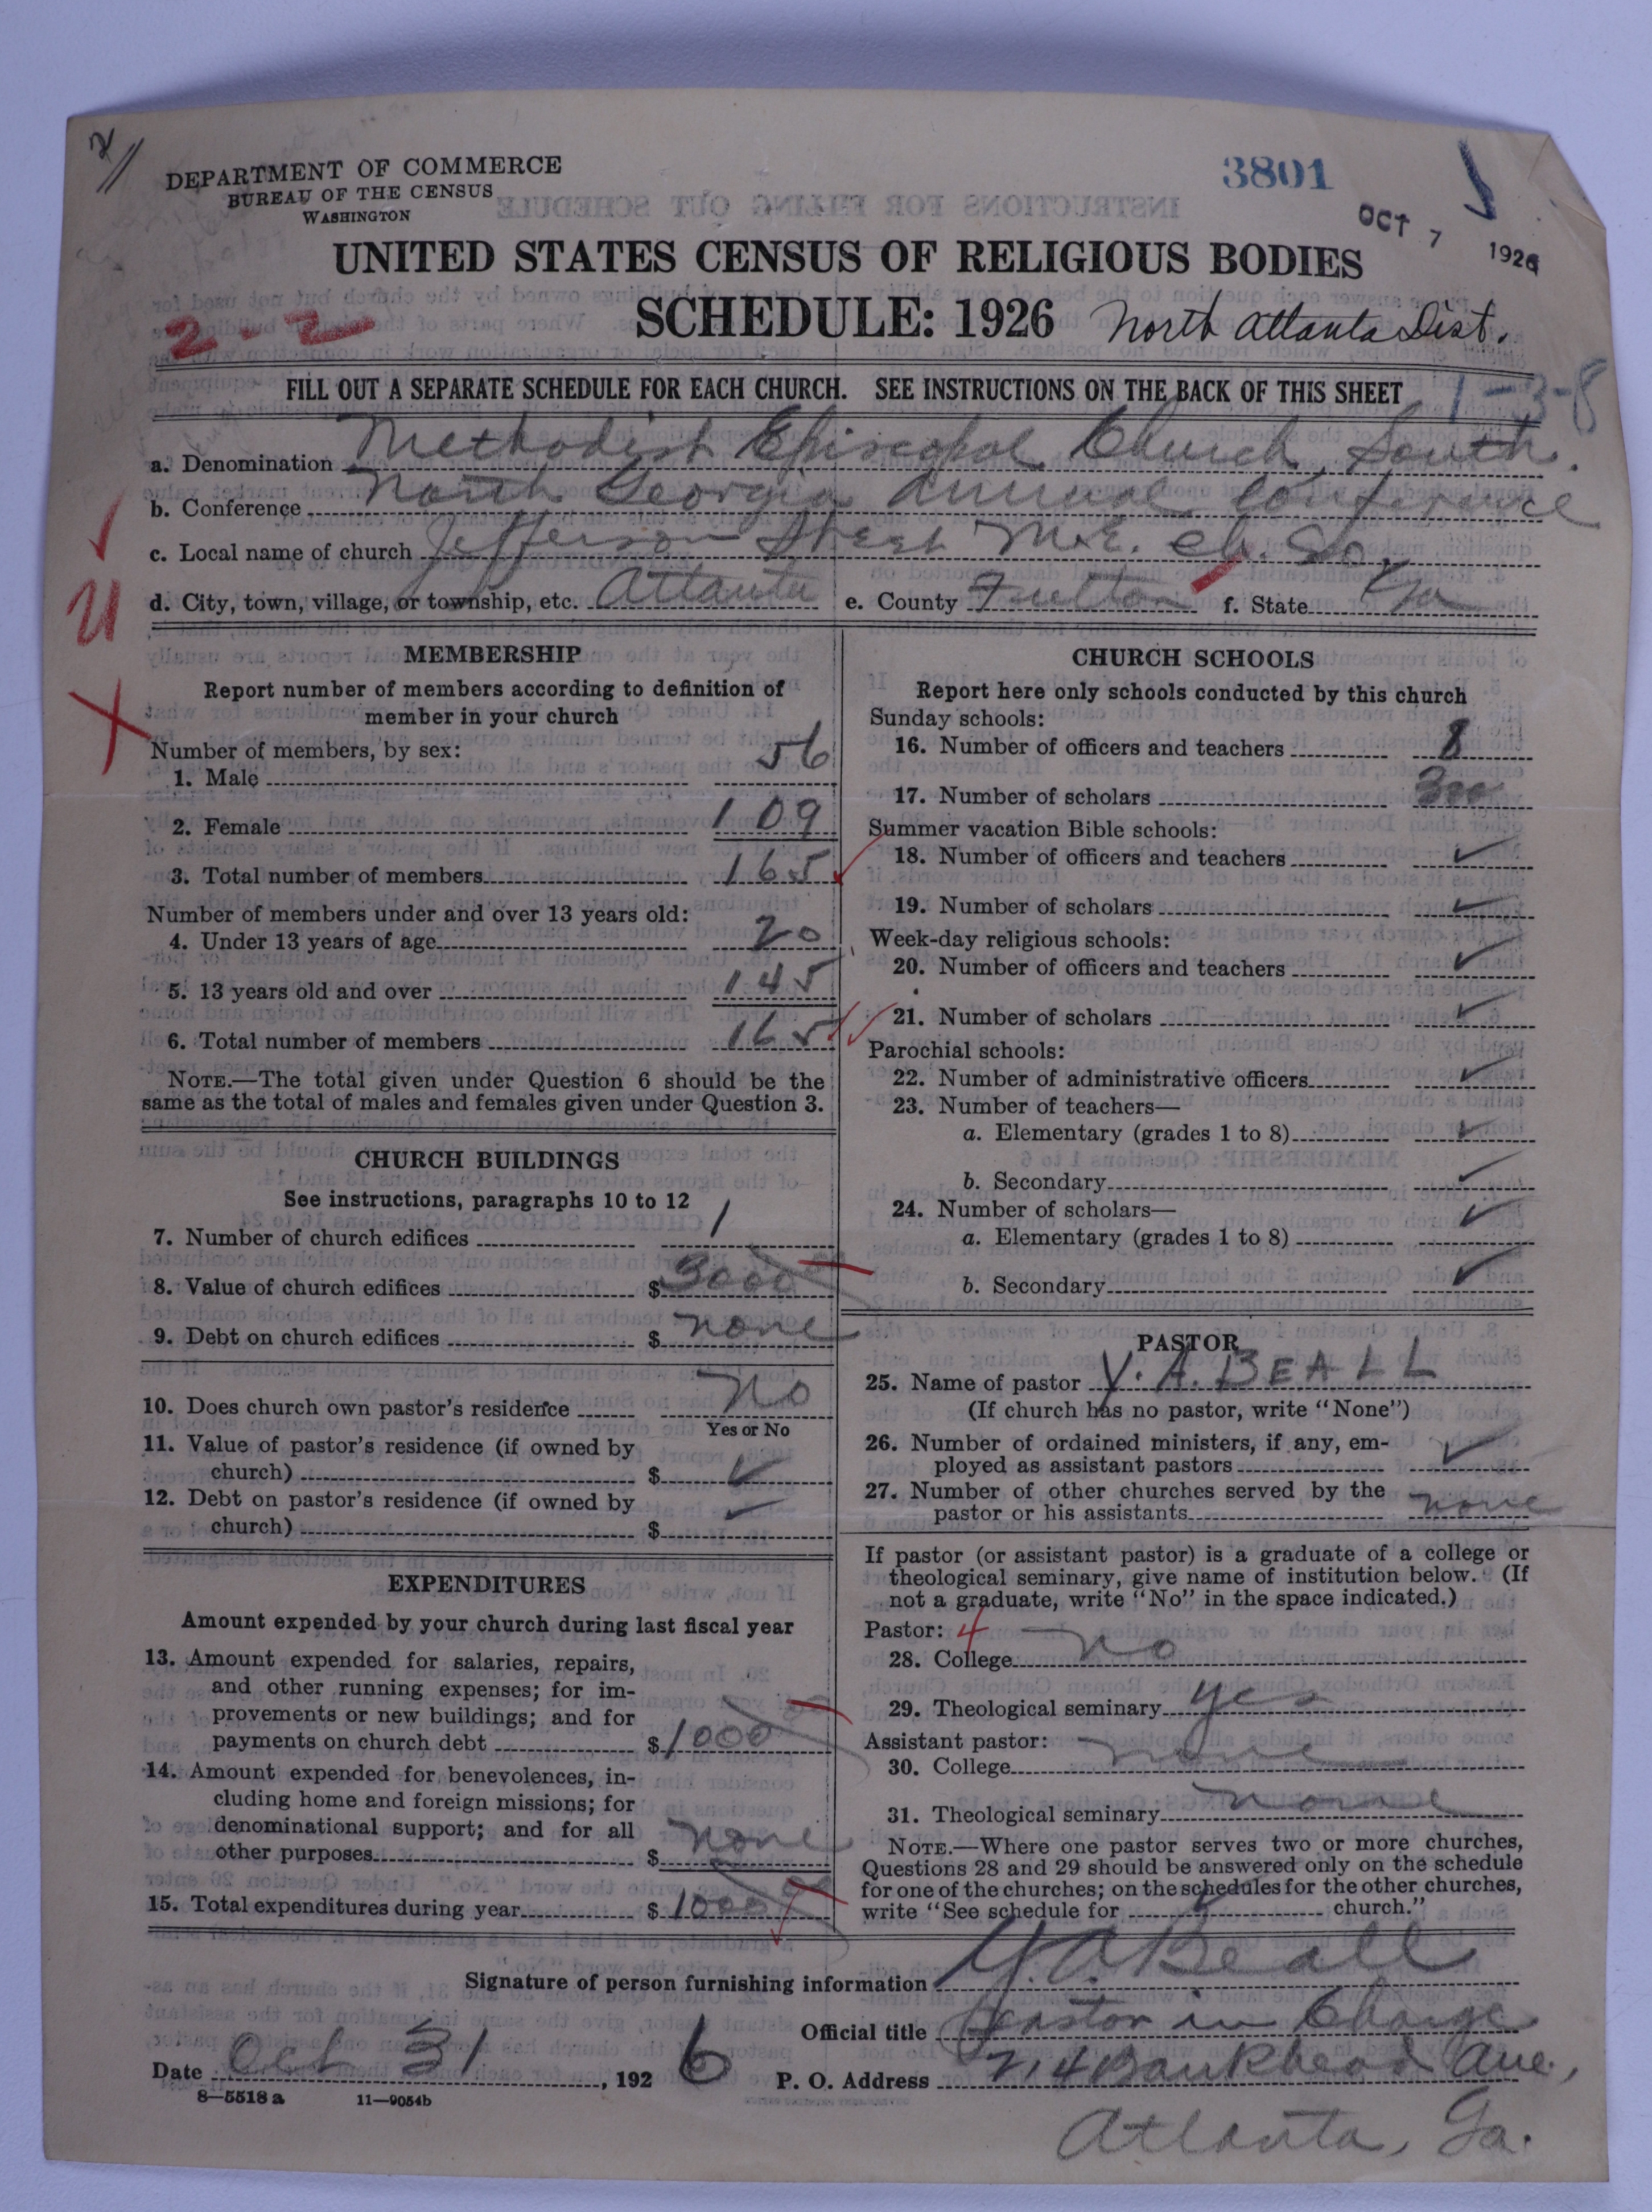 2/
DEPARTMENT OF COMMERCE
BUREAU OF THE CENSUS
WASHINGTON
3801
OCT 7 1926
UNITED STATES CENSUS OF RELIGIOUS BODIES
2-2
SCHEDULE: 1926 North Atlanta Dist.
FILL OUT A SEPARATE SCHEDULE FOR EACH CHURCH. SEE INSTRUCTIONS ON THE BACK OF THIS SHEET
1-3-8
a. Denomination Methodist Episcopal Church, South.
b. Conference North Georgia Annual Conference
c. Local name of church Jefferson Street M.E. Ch. So.
d. City, town, village, or township, etc. Atlanta e. County Fulton f. State Ga
U
X
MEMBERSHIP
Report number of members according to definition of
member in your church
Number of members, by sex:
1. Male 56
2. Female 109
3. Total number of members 165
Number of members under and over 13 years old:
4. Under 13 years of age 20
5. 13 years old and over 145
6. Total number of members 165
NOTE.—The total given under Question 6 should be the
same as the total of males and females given under Question 3.
CHURCH BUILDINGS
See instructions, paragraphs 10 to 12
7. Number of church edifices 1
8. Value of church edifices $3000
9. Debt on church edifices $ none
10. Does church own pastor's residence No
Yes or No
11. Value of pastor's residence (if owned by
church) $ ✓
12. Debt on pastor's residence (if owned by
church) $ ✓
EXPENDITURES
Amount expended by your church during last fiscal year
13. Amount expended for salaries, repairs,
and other running expenses; for im-
provements or new buildings; and for
payments on church debt $1000
14. Amount expended for benevolences, in-
cluding home and foreign missions; for
denominational support; and for all
other purposes $ none
15. Total expenditures during year $1000
CHURCH SCHOOLS
Report here only schools conducted by this church
Sunday schools:
16. Number of officers and teachers 8
17. Number of scholars 300
Summer vacation Bible schools:
18. Number of officers and teachers ✓
19. Number of scholars ✓
Week-day religious schools:
20. Number of officers and teachers ✓
21. Number of scholars ✓
Parochial schools:
22. Number of administrative officers ✓
23. Number of teachers—
a. Elementary (grades 1 to 8) ✓
b. Secondary ✓
24. Number of scholars—
a. Elementary (grades 1 to 8) ✓
b. Secondary ✓
PASTOR
25. Name of pastor Y. A. BEALL
(If church has no pastor, write "None")
26. Number of ordained ministers, if any, em-
ployed as assistant pastors ✓
27. Number of other churches served by the
pastor or his assistants none
If pastor (or assistant pastor) is a graduate of a college or
theological seminary, give name of institution below. (If
not a graduate, write "No" in the space indicated.)
Pastor: 4
28. College no
29. Theological seminary yes
Assistant pastor:
30. College none
31. Theological seminary none
NOTE.—Where one pastor serves two or more churches,
Questions 28 and 29 should be answered only on the schedule
for one of the churches; on the schedules for the other churches,
write "See schedule for ✓ church."
Signature of person furnishing information Y. A. Beall
Official title Pastor in Charge
Date Oct 31, 1926 P. O. Address 714 Bankhead Ave,
8—5518 a 11—9054b
Atlanta, Ga.